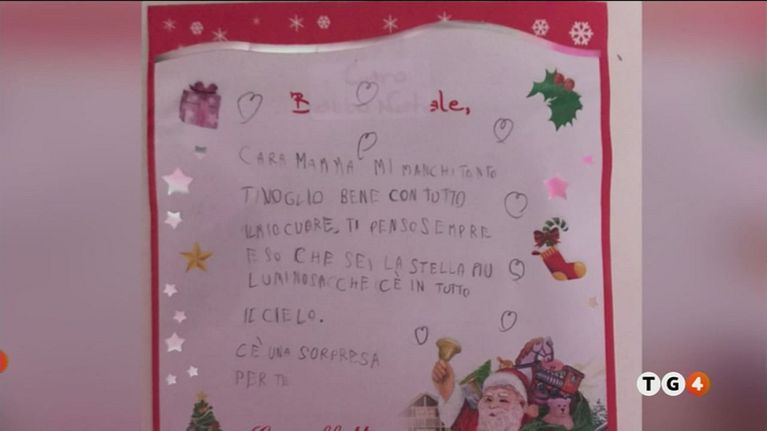 ale,
CARA MAMMA MI MANCHI TANTO
TI VOGLIO BENE CON TUTTO
IL MIO CUORE, TI PENSO SEMPRE
E SO CHE SEI LA STELLA PIU
LUMINOSA CHE C'È IN TUTTO
IL CIELO.
C'È UNA SORPRESA
PER TE
TG4